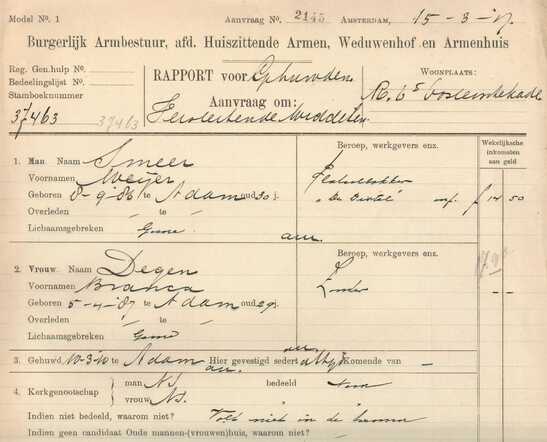 Model No. 1 Aanvraag No. 2145 AMSTERDAM, 15-3-17
Burgerlijk Armbestuur, afd. Huiszittende Armen, Weduwenhof en Armenhuis
Reg. Gen.hulp No.
Bedeelingslijst No.
Stamboeknummer
37463 37463
RAPPORT voor Gehuwden
Aanvraag om:
Versterkende Middelen
WOONPLAATS:
Wekelijksche inkomsten aan geld
1. Man Naam Smeer
Voornamen Meijer
Geboren 8-9-86 te A'dam oud 30
Overleden — te —
Lichaamsgebreken Geene
Beroep, werkgevers enz.
f 14 50
2. Vrouw. Naam Degen
Voornamen Branca
Geboren 5-4-87 te A'dam oud 29
Overleden — te —
Lichaamsgebreken Geene
Beroep, werkgevers enz.
Zonder
3. Gehuwd 10-3-10 te A'dam Hier gevestigd sedert altijd Komende van —
4. Kerkgenootschap man N.I. bedeeld
vrouw N.I.
Indien niet bedeeld, waarom niet? niet in de
Indien geen candidaat Oude mannen-(vrouwen)huis, waarom niet?